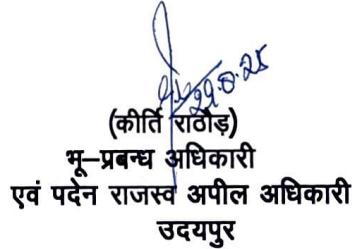 29.8.25
(कीर्ति राठौड़)
भू–प्रबन्ध अधिकारी
एवं पदेन राजस्व अपील अधिकारी
उदयपुर